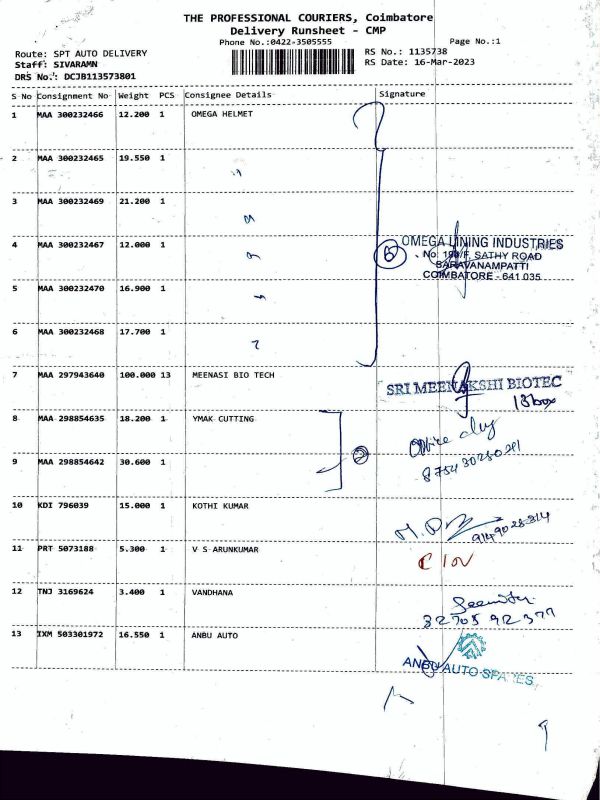 THE PROFESSIONAL COURIERS, Coimbatore
Delivery Runsheet - CMP
Phone No.:0422-3505555
Page No.:1
Route: SPT AUTO DELIVERY
RS No.: 1135738
Staff: SIVARAMN
RS Date: 16-Mar-2023
DRS No.: DCJB113573801
S No Consignment No Weight PCS Consignee Details Signature
1 MAA 300232466 12.200 1 OMEGA HELMET
2 MAA 300232465 19.550 1
3 MAA 300232469 21.200 1
4 MAA 300232467 12.000 1
6
OMEGA LINING INDUSTRIES
No. 190/F, SATHY ROAD
SARAVANAMPATTI
COIMBATORE - 641 035
5 MAA 300232470 16.900 1
6 MAA 300232468 17.700 1
7 MAA 297943640 100.000 13 MEENASI BIO TECH
SRI MEENAKSHI BIOTEC
13box
8 MAA 298854635 18.200 1 YMAK CUTTING
Office
9 MAA 298854642 30.600 1
2
10 KDI 796039 15.000 1 KOTHI KUMAR
11 PRT 5073188 5.300 1 V S ARUNKUMAR
12 TNJ 3169624 3.400 1 VANDHANA
13 IXM 503301972 16.550 1 ANBU AUTO
ANBU AUTO SPARES